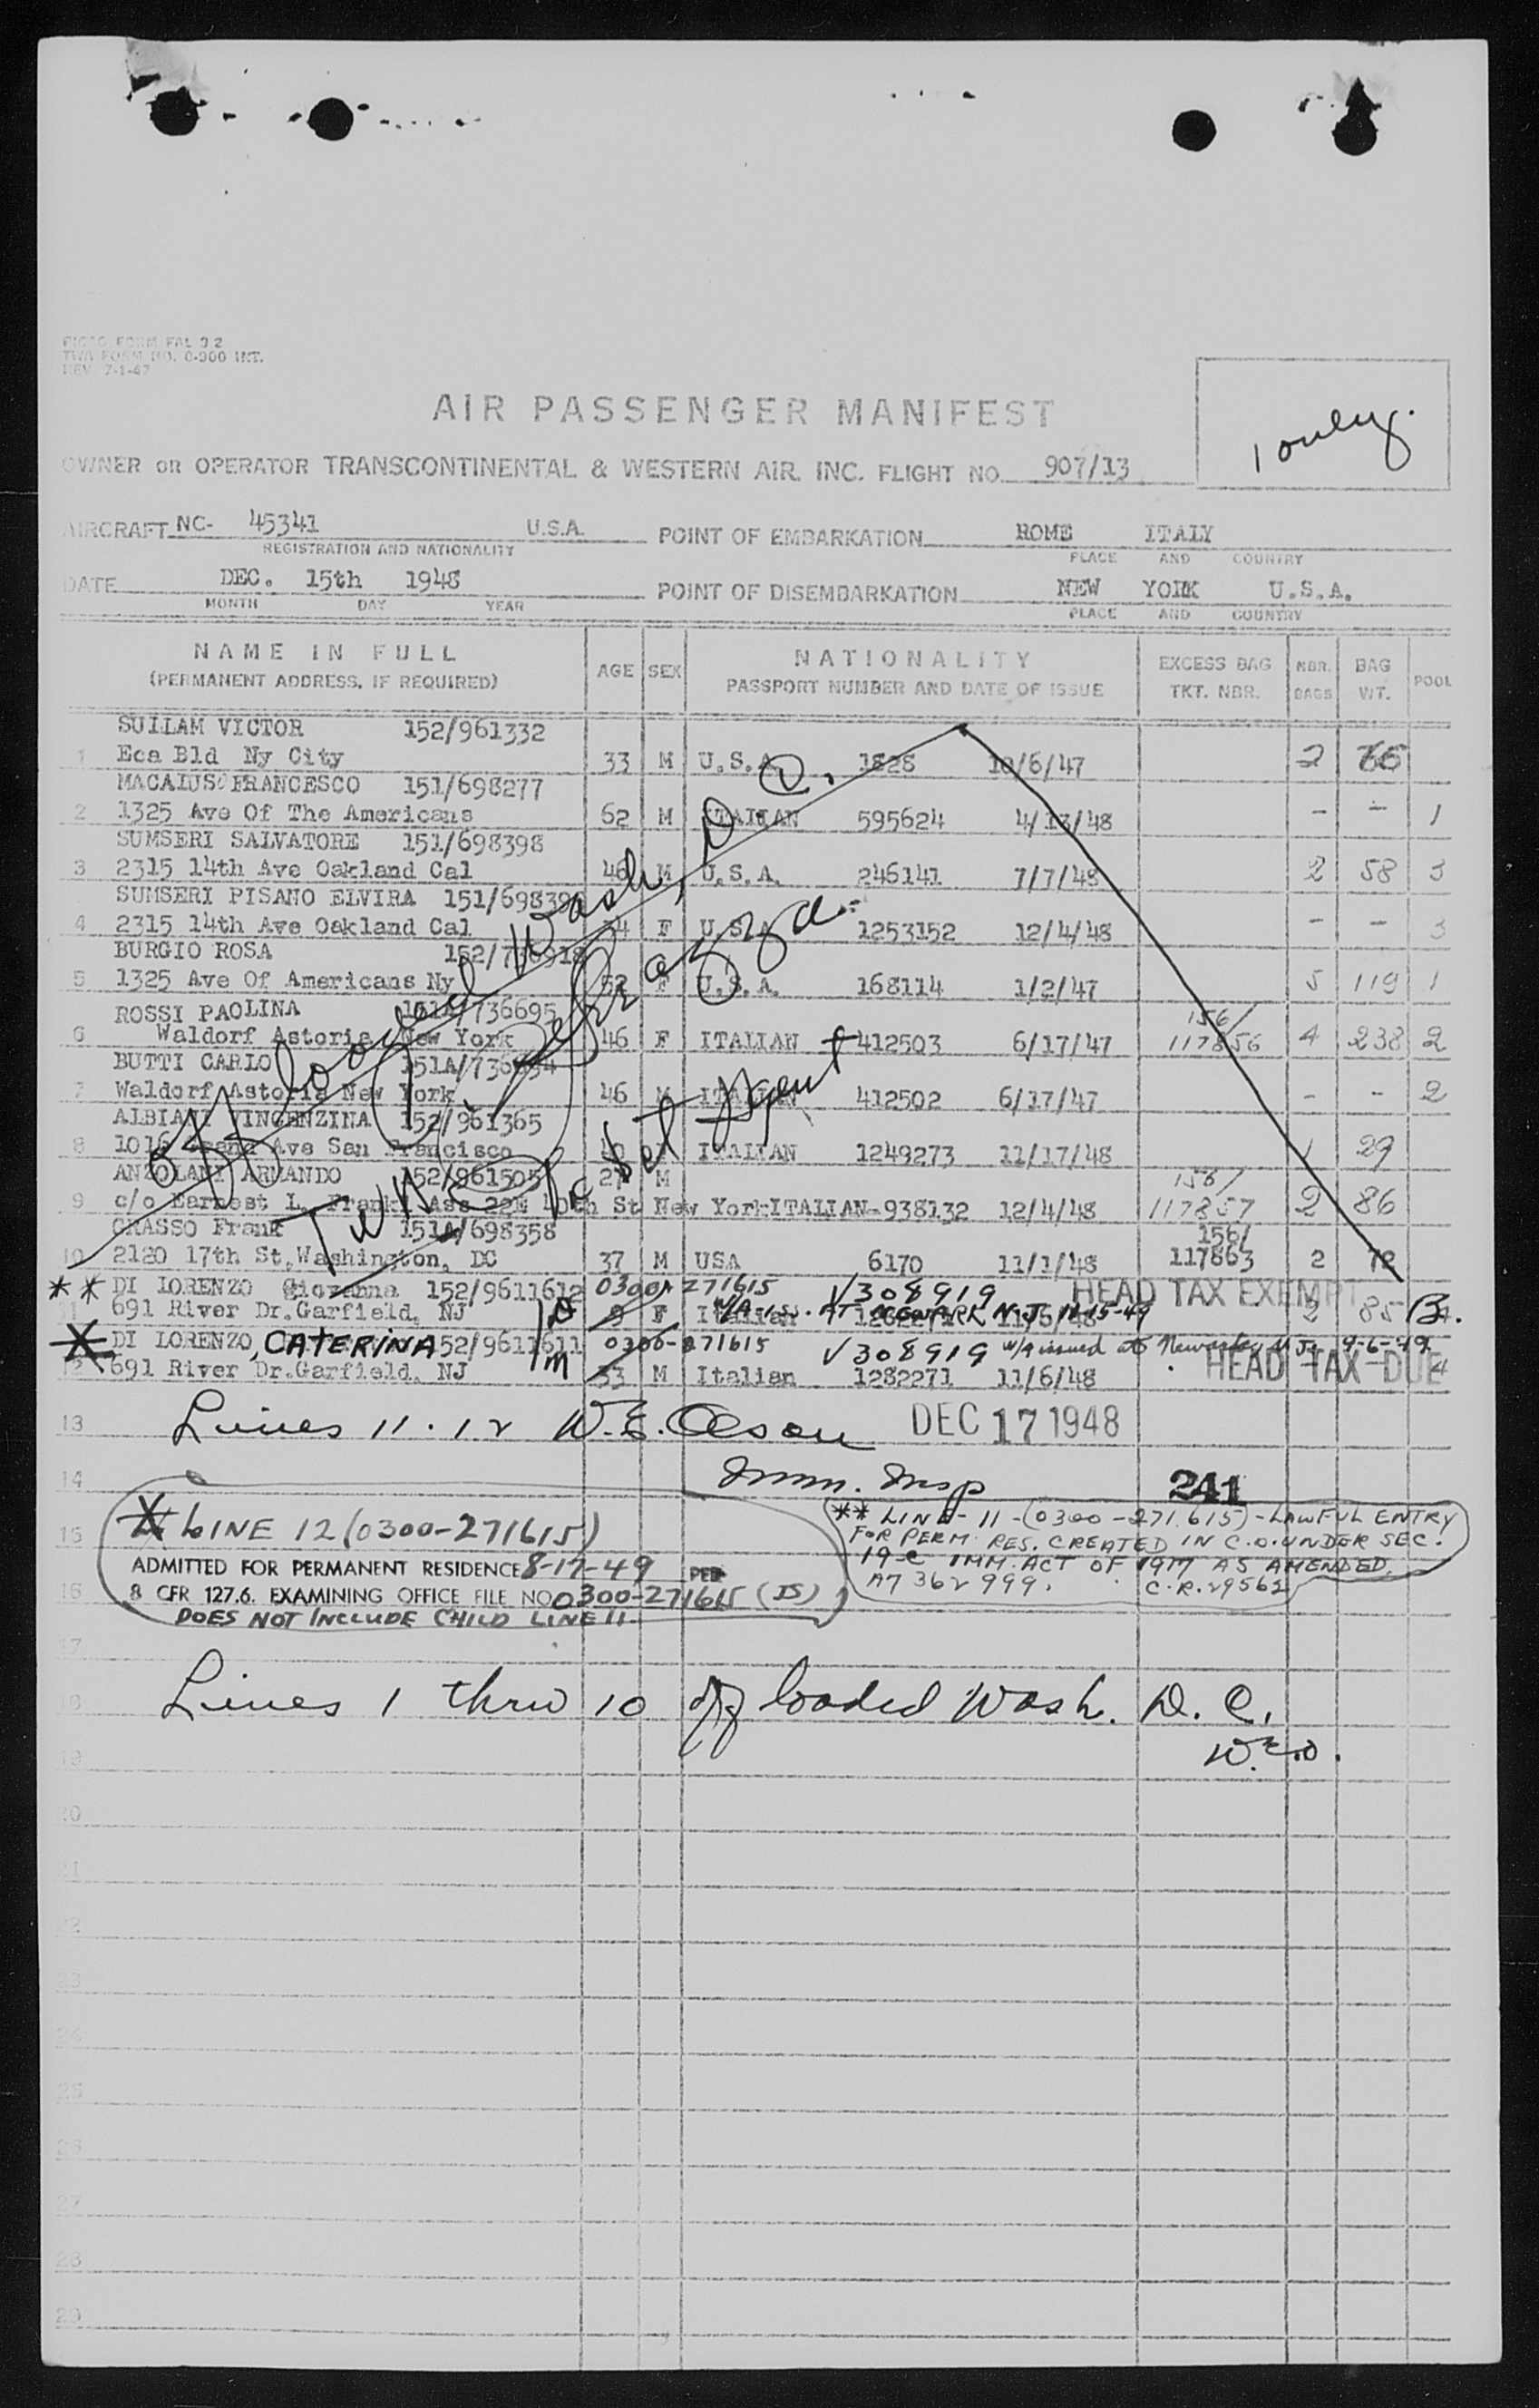 PICAO FORM FAL 3.2
TWA FORM NO. 0-900 INT.
REV 7-1-47
AIR PASSENGER MANIFEST
1 only.
OWNER OR OPERATOR TRANSCONTINENTAL & WESTERN AIR. INC. FLIGHT NO. 907/13
AIRCRAFT NC- 45341 U.S.A. POINT OF EMBARKATION ROME ITALY
REGISTRATION AND NATIONALITY PLACE AND COUNTRY
DATE DEC. 15th 1948 POINT OF DISEMBARKATION NEW YORK U.S.A.
MONTH DAY YEAR PLACE AND COUNTRY
NAME IN FULL AGE SEX NATIONALITY EXCESS BAG NBR. BAG POOL
(PERMANENT ADDRESS, IF REQUIRED) PASSPORT NUMBER AND DATE OF ISSUE TKT. NBR. BAGS WT.
SULLAM VICTOR 152/961332
1 Eca Bld Ny City 33 M U.S.A. 1828 10/6/47 2
MACALUSO FRANCESCO 151/698277
2 1325 Ave Of The Americans 62 M ITALIAN 595624 4/13/48 - - 1
SUMSERI SALVATORE 151/698398
3 2315 14th Ave Oakland Cal 46 M U.S.A. 246141 7/7/48 2 58 3
SUMSERI PISANO ELVIRA 151/698399
4 2315 14th Ave Oakland Cal F U.S.A 1253152 12/4/48 - - 3
BURGIO ROSA
5 1325 Ave Of Americans Ny 52 F U.S.A. 168114 1/2/47 5 119 1
ROSSI PAOLINA 151A/736695 156/
6 Waldorf Astoria New York 46 F ITALIAN 412503 6/17/47 117856 4 238 2
BUTTI CARLO 151A/736694
7 Waldorf Astoria New York 46 M ITALIAN 412502 6/17/47 - - 2
ALBIANI VINCENZINA 152/961365
8 1016 Ave San Francisco ITALIAN 1249273 11/17/48 1 29
ANZOLANI ARMANDO 152/961505 27 M 156/
9 c/o Earnest L. Frankl Ass 22E 40th St New York ITALIAN-938132 12/4/48 117857 2 86
CRASSO Frank 151A/698358 156/
10 2120 17th St, Washington, DC 37 M USA 6170 11/1/48 117863 2 72
Off loaded Wash, D.C.
TWA Tkt Agent
** DI LORENZO Giovanna 152/9611612 0300-271615 V308919 HEAD TAX EXEMPT
11 691 River Dr. Garfield, NJ 9 F Italian AT NEWARK N.J. 11-15-49 2 85 B.
X DI LORENZO, CATERINA 152/9611611 0300-271615 V308919 w/a issued at Newark, N.J. 9-6-49
12 691 River Dr. Garfield, NJ m 33 M Italian 1282271 11/6/48 HEAD TAX DUE
13 Lines 11-12 W.E. Olson DEC 17 1948
14 Imm. Insp 241
15 X LINE 12 (0300-271615)
ADMITTED FOR PERMANENT RESIDENCE 8-17-49 PER
16 8 CFR 127.6. EXAMINING OFFICE FILE NO 0300-271615 (IS)
DOES NOT INCLUDE CHILD LINE 11
** LINE-11-(0300-271615)-LAWFUL ENTRY
FOR PERM. RES. CREATED IN C.O. UNDER SEC.
19 C IMM. ACT OF 1917 AS AMENDED.
A7 362 999. C.R. 29562
17
18 Lines 1 thru 10 off loaded Wash. D.C.
19 W.E.O.
20
21
22
23
24
25
26
27
28
29